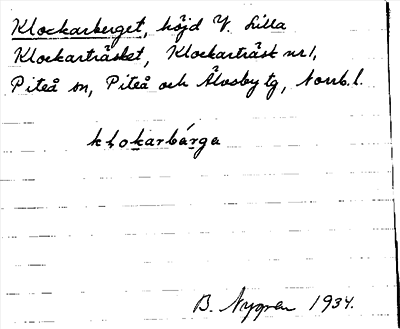 Klockarberget, höjd V. Lilla
Klockarträsket, Klockarträsk nr 1,
Piteå sn, Piteå och Älvsby tg, Norrb. l.
klokarbárga
B. Nygren 1934.